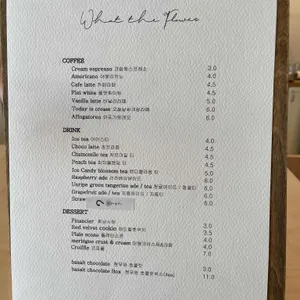 What the Flower
COFFEE
Cream espresso 크림에스프레소 3.0
Americano 아메리카노 4.0
Cafe latte 카페라떼 4.5
Flat white 플랫화이트 4.5
Vanilla latte 바닐라라떼 5.0
Today is cream 오늘날씨크림라떼 6.0
Affogatoren 아포가토 6.0
DRINK
Ice tea 아이스티 4.0
Choco latte 초코라떼 4.5
Chamomile tea 캐모마일 티 4.5
Peach tea 4.5
Ice Candy blossom tea 6.0
Raspberry ade 라즈베리에이드 6.0
Unripe green tangerine ade / tea 6.0
Grapefruit ade / tea 자몽에이드 / 자몽티 6.0
Straw 6.0
DESSERT
Financier 휘낭시에
Red velvet cookie 레드벨벳쿠키
Plain scone 플레인스콘
meringue crust & cream
Croiffle 크로플 7.0
basalt chocolate 현무암 초콜릿 3.0
basalt chocolate Box 11.0